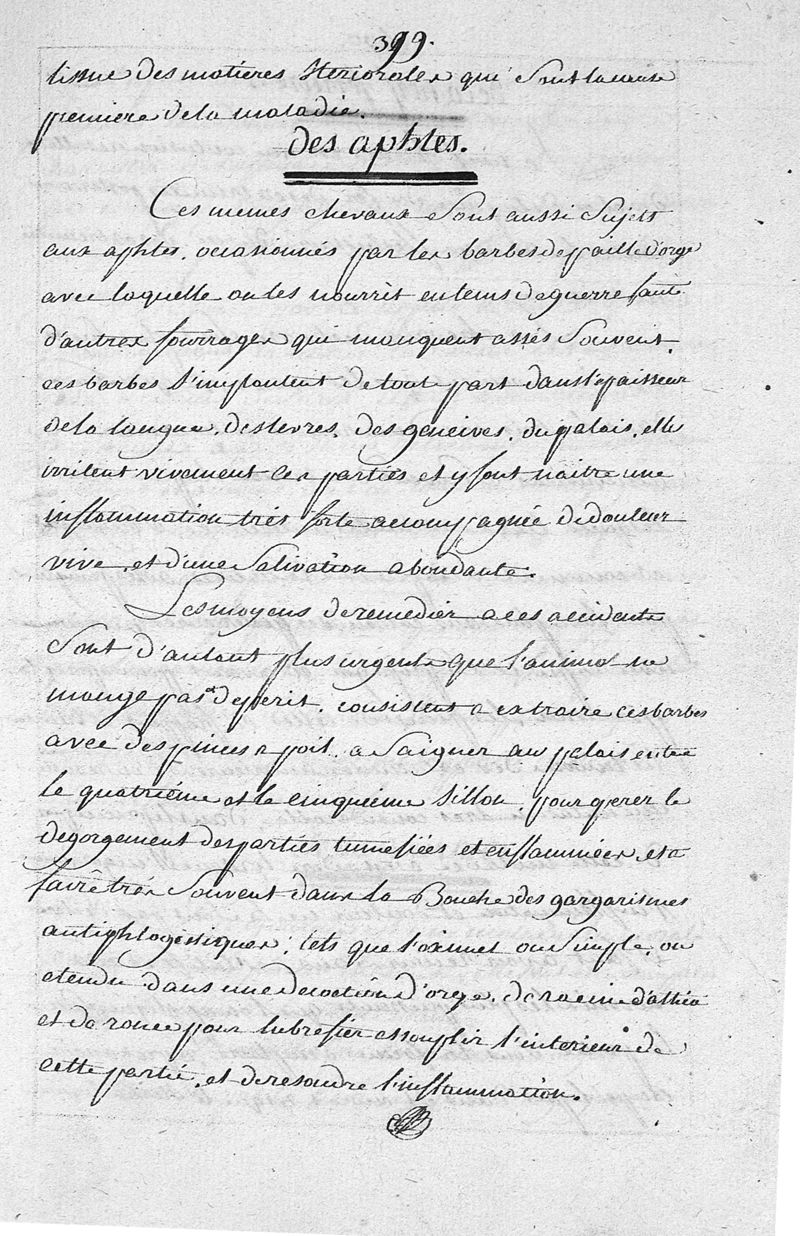 399.
lissue des matiéres Stercorales qui sont la cause
premiere de la maladie.
des aphtes.
Ces memes chevaux sont aussi sujets
aux aphtes, ocasionnés par les barbes de paille d'orge
avec laquelle on les nourrit en tems de guerre faute
d'autres fourrages qui manquent assés souvent.
ces barbes s'implantent de tout part dans l'epaisseur
de la langue, des levres, des geneives, du palais, elles
irritent vivement ces parties et y font naitre une
inflammation trés forte accompagnée de douleur
vive, et d'une salivation abondante.
Les moyens de remedier a ces accidents
sont d'autant plus urgents que l'animal ne
mange pas et deperit, consistent a extraire ces barbes
avec des pinces a poil, a saigner au palais entre
le quatriéme et le cinquiéme sillon, pour operer le
degorgement des parties tumefiées et enflammées, et a
faire trés souvent dans la Bouche des gargarismes
antiphlogistiques, tels que l'oximel ou simple, ou
etendu dans une decoction d'orge, de racine d'althéa
et de ronce pour lubrefier assouplir l'interieur de
cette partie, et de resoudre l'inflammation.